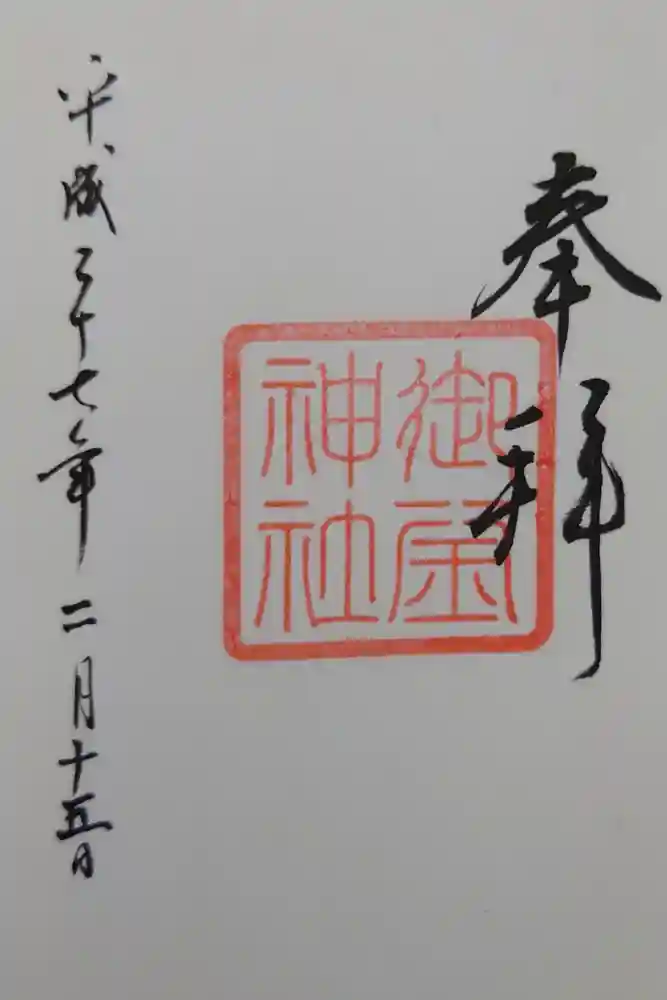 奉拝
御原
神社
平成二十七年二月十五日